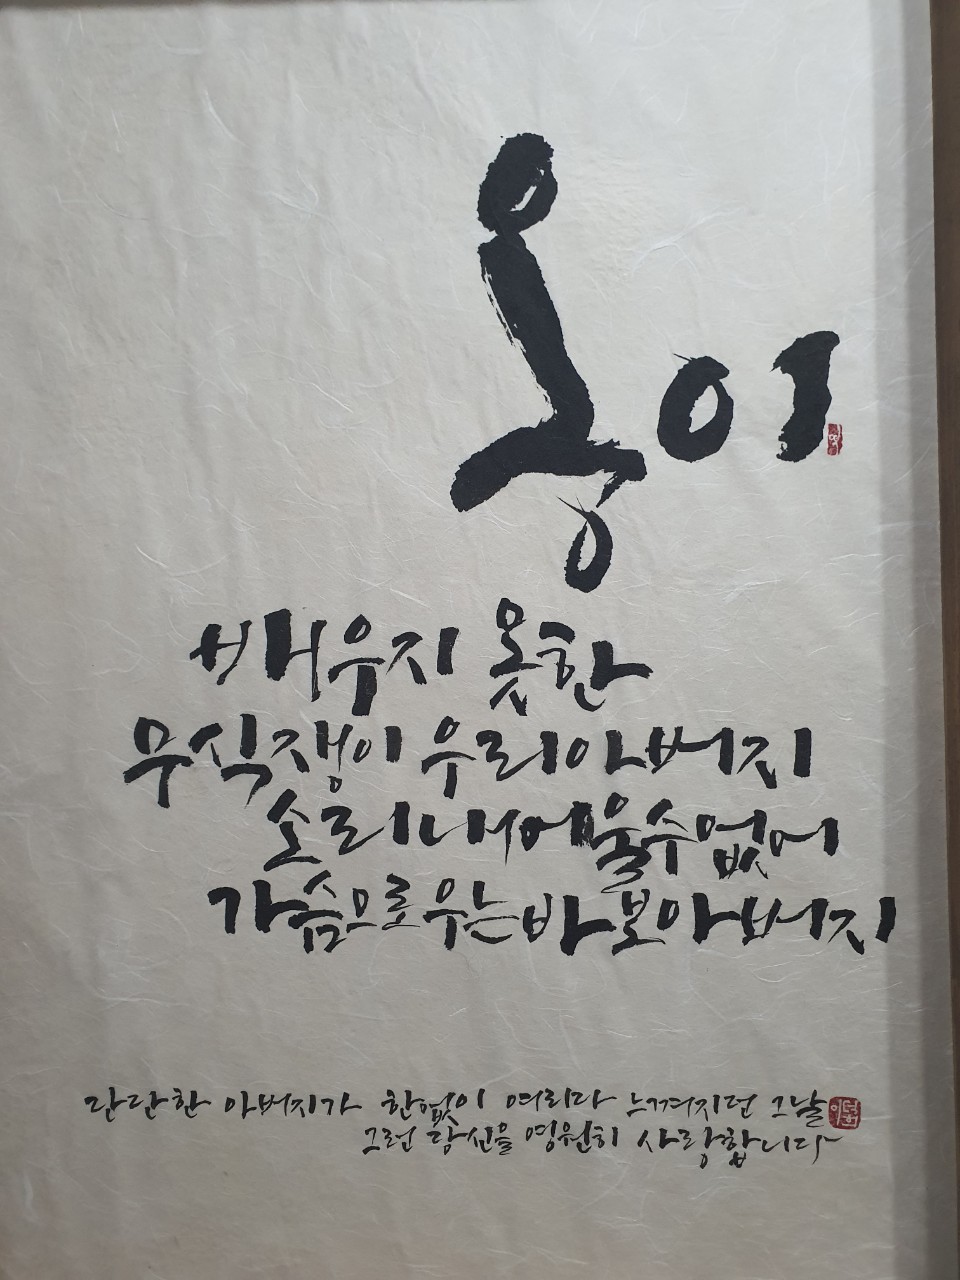 옹이
배우지 못한
무식쟁이 우리아버지
소리내어 울수없어
가슴으로 우는 바보아버지
단단한 아버지가 한없이 여리다 느껴지던 그날
그런 당신을 영원히 사랑합니다